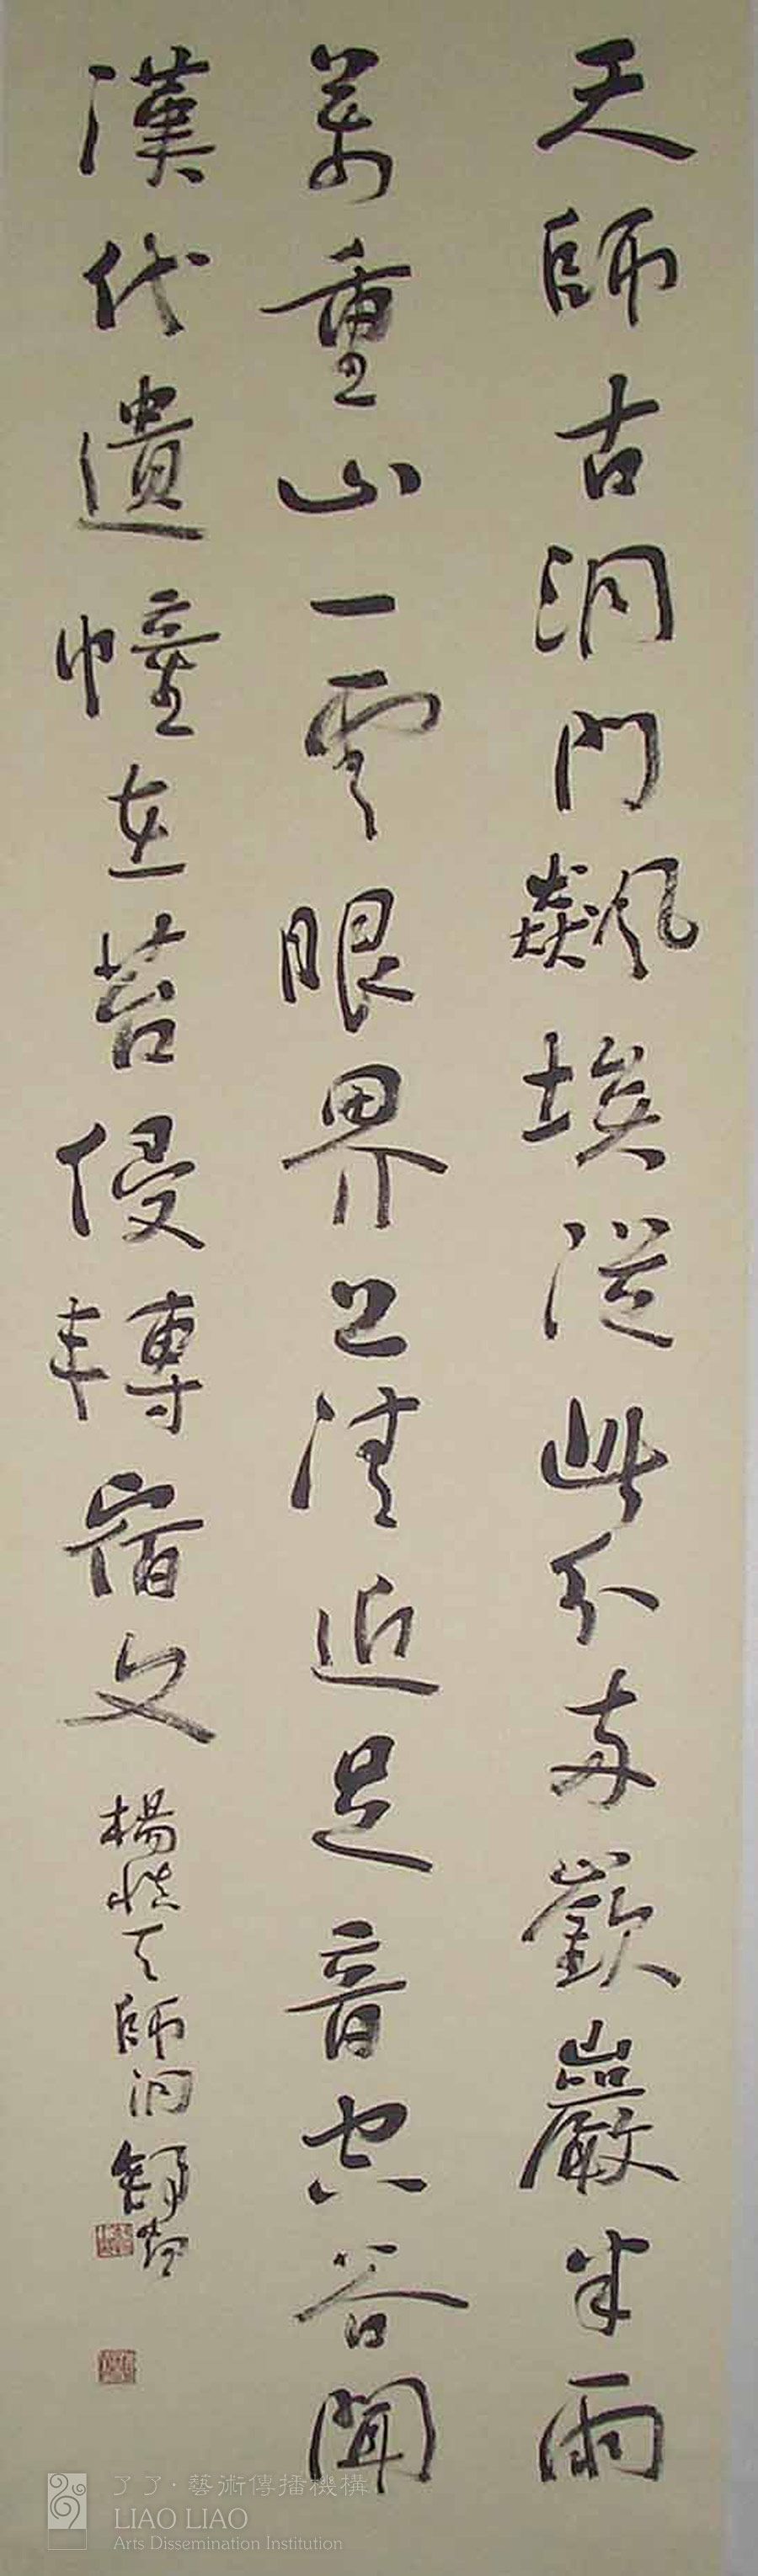 天師古洞門飇埃從此分両嶔巖半雨
萬重山一雲眼界上清近足音空谷聞
漢代遺幢在苔侵轉宿文
楊慎天師洞
了了·藝術傳播機構
LIAO LIAO
Arts Dissemination Institution